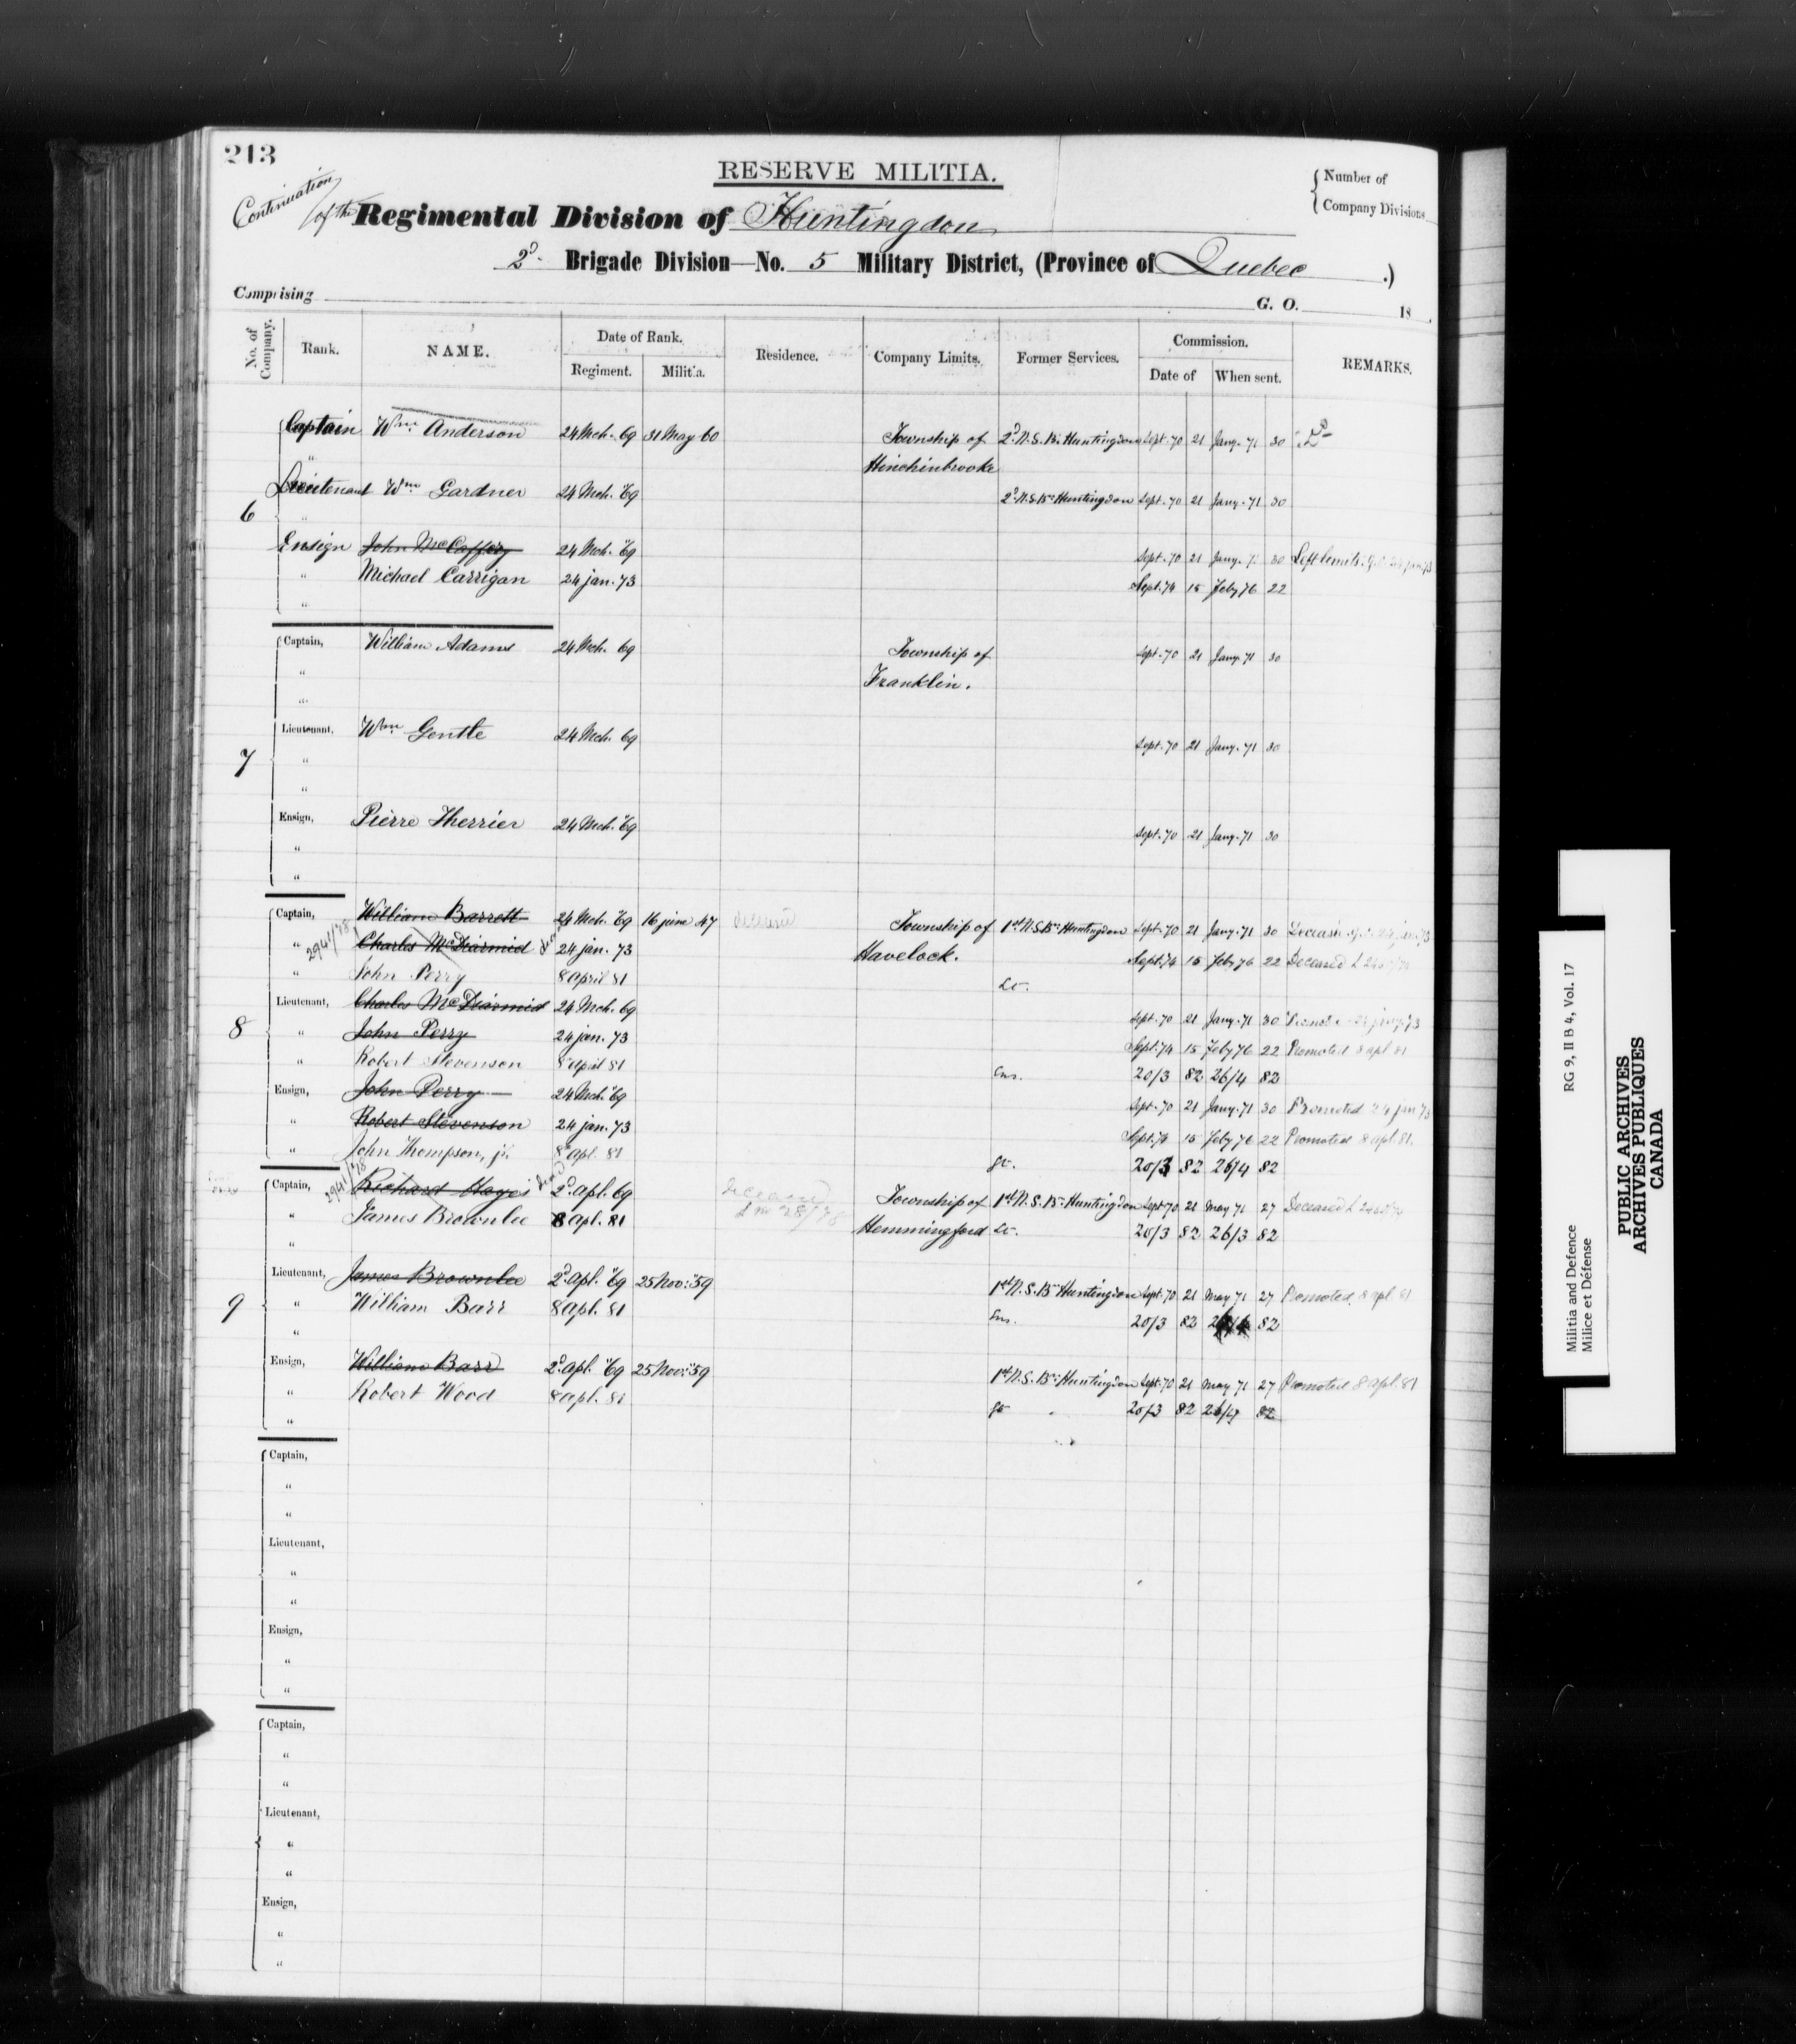 213
RESERVE MILITIA.
Continuation of the Regimental Division of Huntingdon
Number of Company Divisions
2d Brigade Division—No. 5 Military District, (Province of Quebec .)
Comprising G. O. 18
No. of Company. Rank. NAME. Date of Rank. Residence. Company Limits. Former Services. Commission. REMARKS.
Regiment. Militia. Date of When sent.
Captain Wm. Anderson 24 Mch. 69 31 May 60 Township of 2d N.S. Bn. Huntingdon Sept. 70 21 Jany. 71 30
" Hinchinbrooke
Lieutenant Wm. Gardner 24 Mch. 69 2d N.S. Bn. Huntingdon Sept. 70 21 Jany. 71 30
6
"
Ensign John McCaffery 24 Mch. 69 Sept. 70 21 Jany. 71 30 Left limits. G.O. 24 jan. 73
" Michael Carrigan 24 jan. 73 Sept. 74 15 Feby 76 22
"
Captain, William Adams 24 Mch. 69 Township of Sept. 70 21 Jany. 71 30
" Franklin.
"
Lieutenant, Wm. Gentle 24 Mch. 69 Sept. 70 21 Jany. 71 30
7 "
"
Ensign, Pierre Therrier 24 Mch. 69 Sept. 70 21 Jany. 71 30
"
"
Captain, William Barrett 24 Mch. 69 16 june 47 deceased Township of 1st N.S. Bn. Huntingdon Sept. 70 21 Jany. 71 30 Deceased G.O. 24 jan. 73
" Charles McDiarmid 24 jan. 73 Havelock. Sept. 74 15 Feby 76 22 Deceased
" John Perry 8 april 81 Lt.
Lieutenant, Charles McDiarmid 24 Mch. 69 Sept. 70 21 Jany. 71 30 24 jany. 73
8 " John Perry 24 jan. 73 Sept. 74 15 Feby 76 22 Promoted 8 apl 81
" Robert Stevenson 8 april 81 Ens. 20/3 82 26/4 82
Ensign, John Perry 24 Mch. 69 Sept. 70 21 Jany. 71 30 Promoted 24 jan 73
" Robert Stevenson 24 jan. 73 Sept. 74 15 Feby 76 22 Promoted 8 apl. 81.
" John Thompson, jr. 8 apl. 81 20/3 82 26/4 82
Captain, Richard Hayes 2d apl. 69 deceased Township of 1st N.S. Bn. Huntingdon Sept. 70 21 May 71 27 Deceased
" James Brownlee 8 apl. 81 Hemmingford Lt. 20/3 82 26/3 82
"
Lieutenant, James Brownlee 2d apl. 69 25 Nov. 59 1st N.S. Bn. Huntingdon Sept. 70 21 May 71 27 Promoted. 8 apl 81
9 " William Barr 8 apl. 81 Ens. 20/3 82 82
"
Ensign, William Barr 2d apl. 69 25 Nov. 59 1st N.S. Bn. Huntingdon Sept. 70 21 May 71 27 Promoted 8 apl. 81
" Robert Wood 8 apl. 81 20/3 82 26/4 82
"
Captain,
"
"
Lieutenant,
"
"
Ensign,
"
"
Captain,
"
"
Lieutenant,
"
"
Ensign,
"
"
Militia and Defence RG 9, II B 4, Vol. 17
Milice et Défense
PUBLIC ARCHIVES
ARCHIVES PUBLIQUES
CANADA